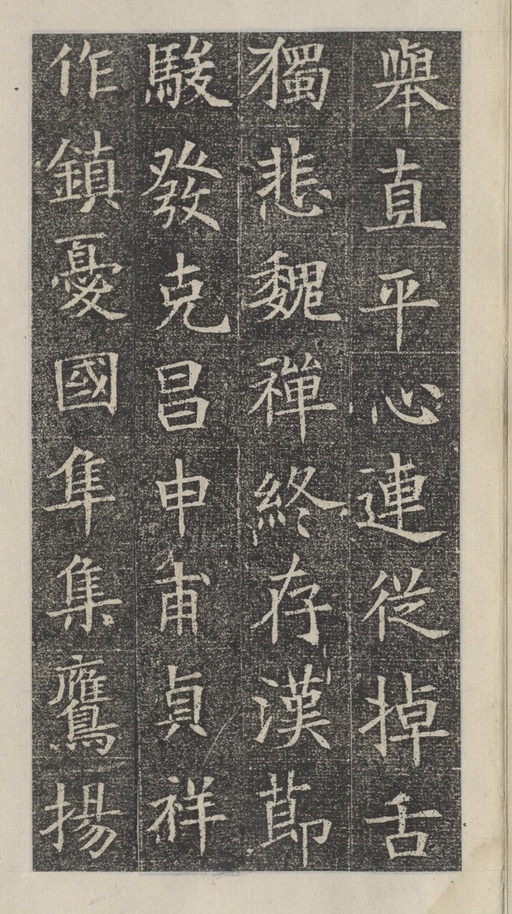 舉直平心連從掉舌
獨悲魏禪終存漢節
駿發克昌申甫貞祥
作鎮憂國隼集鷹揚